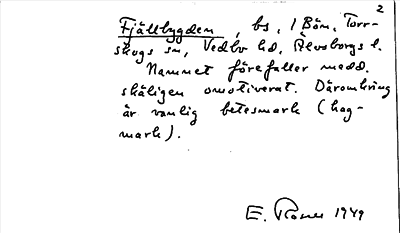 2
Fjällbygden, bs, 1 Bön, Torr-
skogs sn, Vedbo hd, Älvsborgs l.
Namnet förefaller medd.
skäligen omotiverat. Däromkring
är vanlig betesmark (hag-
mark).
E. 1949